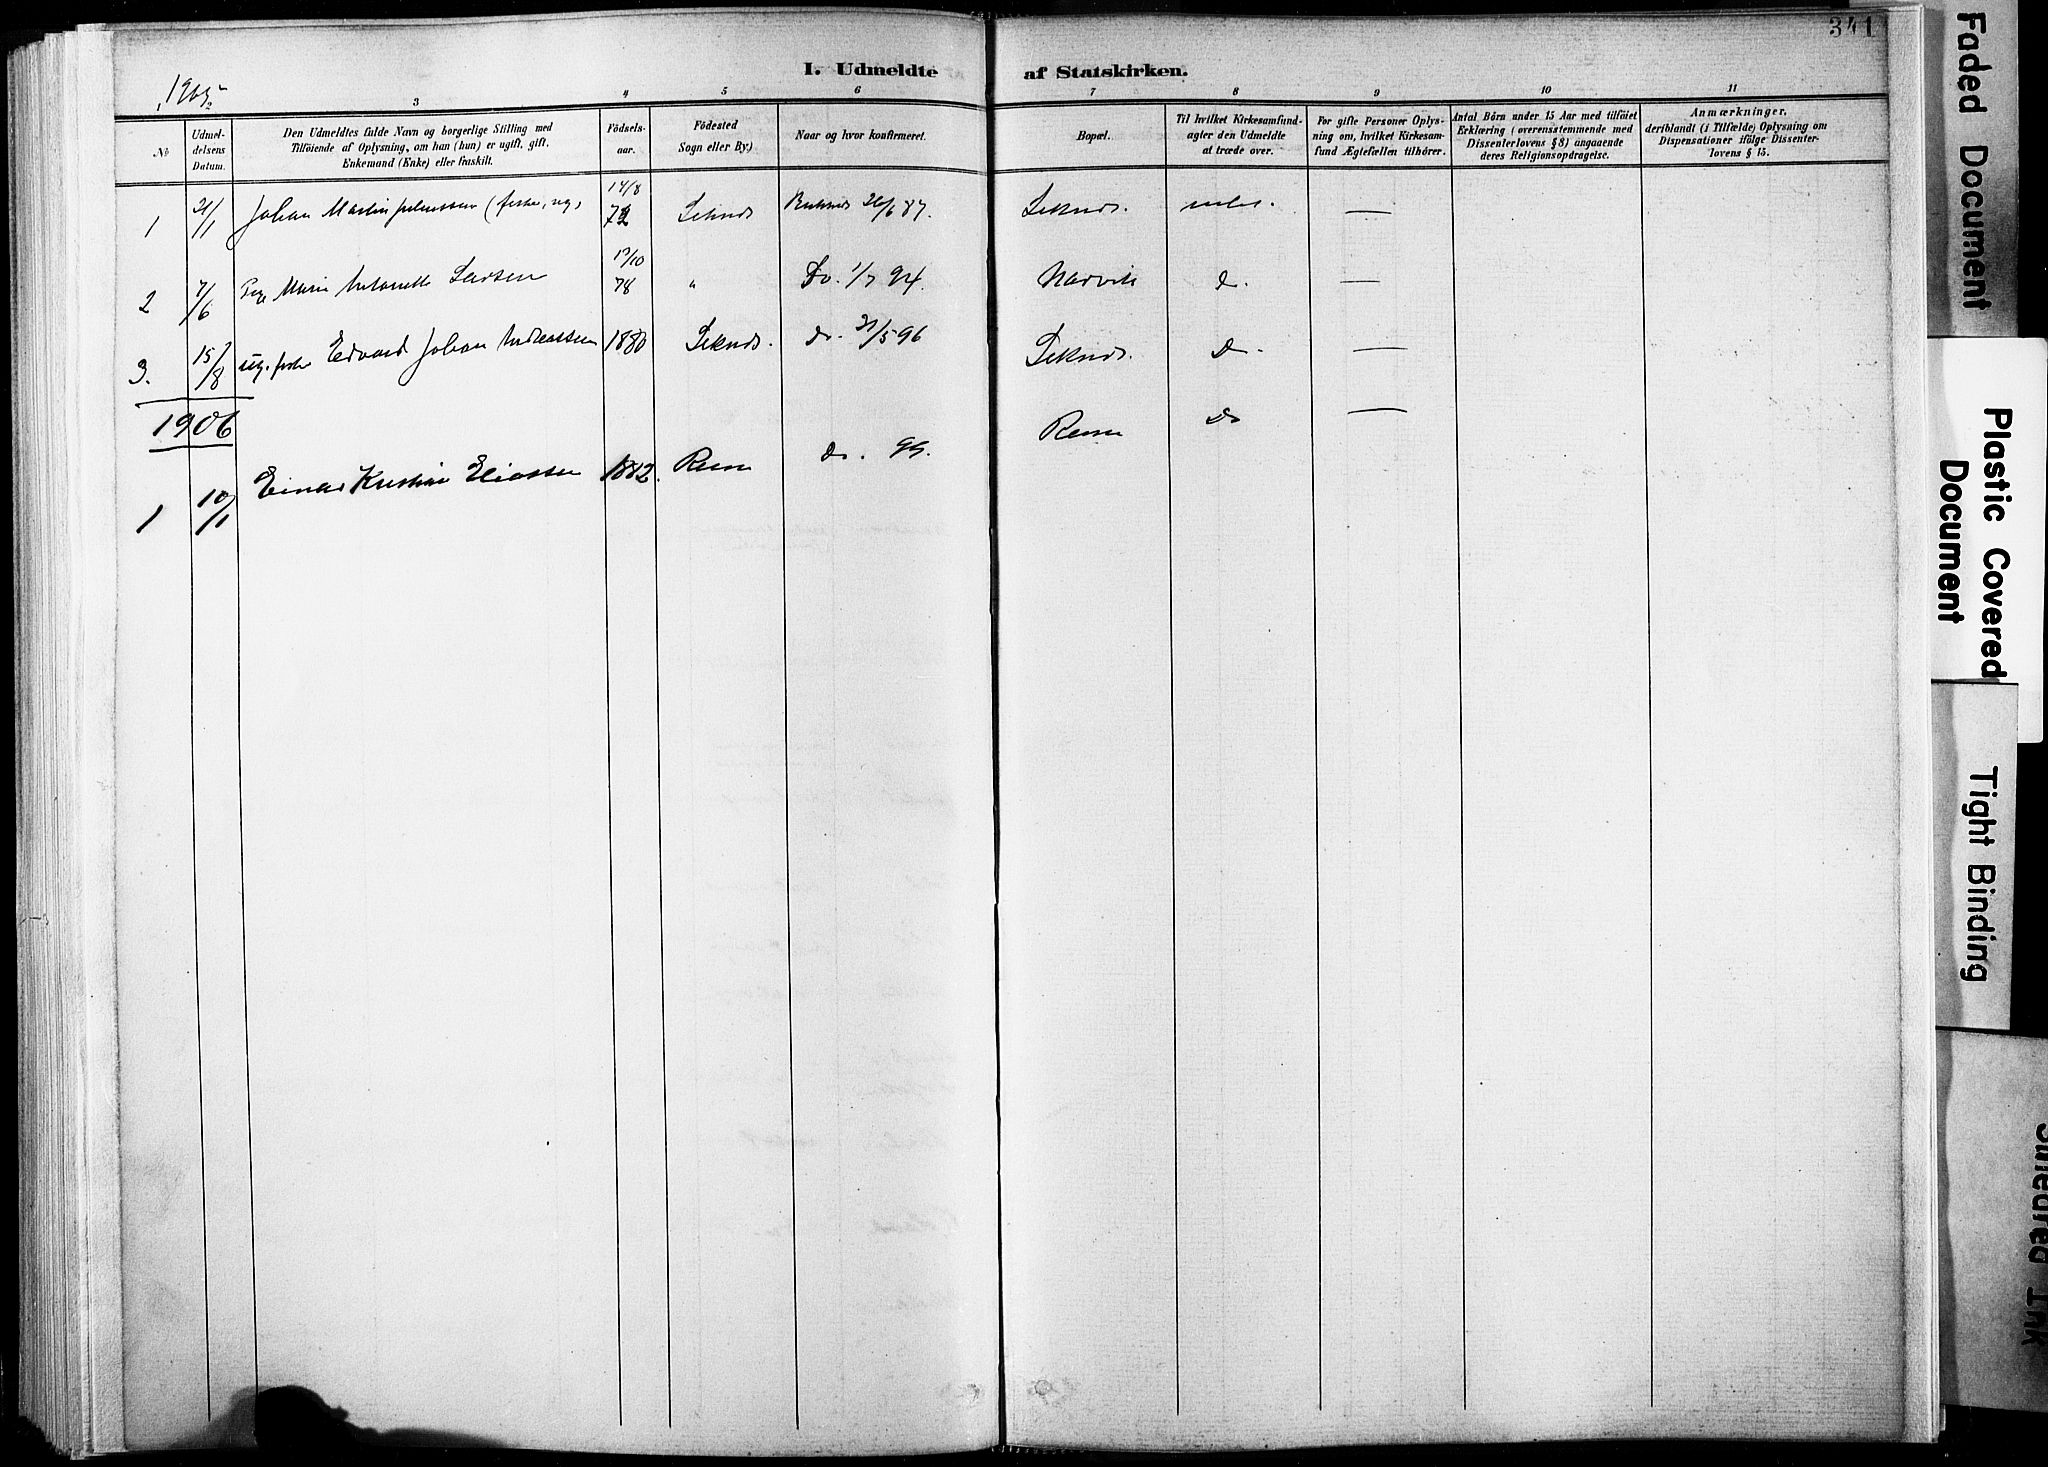 341
I. Udmeldte af Statskirken.
1905
3 4 5 6 7 8 9 10 11
№
Udmeldelsens Datum.
Den Udmeldtes fulde Navn og borgerlige Stilling med
Tilföiende af Oplysning, om han (hun) er ugift, gift,
Enkemand (Enke) eller fraskilt.
Födselsaar.
Födested
Sogn eller By)
Naar og hvor konfirmeret.
Bopæl.
Til hvilket Kirkesamfund-
agter den Udmeldte
at træde over.
For gifte Personer Oplys-
ning om, hvilket Kirkesam-
fund Ægtefællen tilhörer.
Antal Börn under 15 Aar med tilföiet
Erklæring (overensstemmende med
Dissenterlovens § 8) angaaende
deres Religionsopdragelse.
Anmærkninger,
deriblandt (i Tilfælde) Oplysning om
Dispensationer ifölge Dissenter-
lovens § 15.
1 21/1 Johan Martin 14/8 72 26/6 87. —
2 7/6 Pige Marie Larsen 78 " Do. 1/7 94. Narvik d. —
3. 15/8 ug. Edvard Johan Andreassen 1880 do. 31/5 96 D. —
1906
1 10/1 Einar Kristian Eliassen 1882. do. 99. Do —
Faded Document
Plastic Covered Document
Tight Binding
Smeared Ink